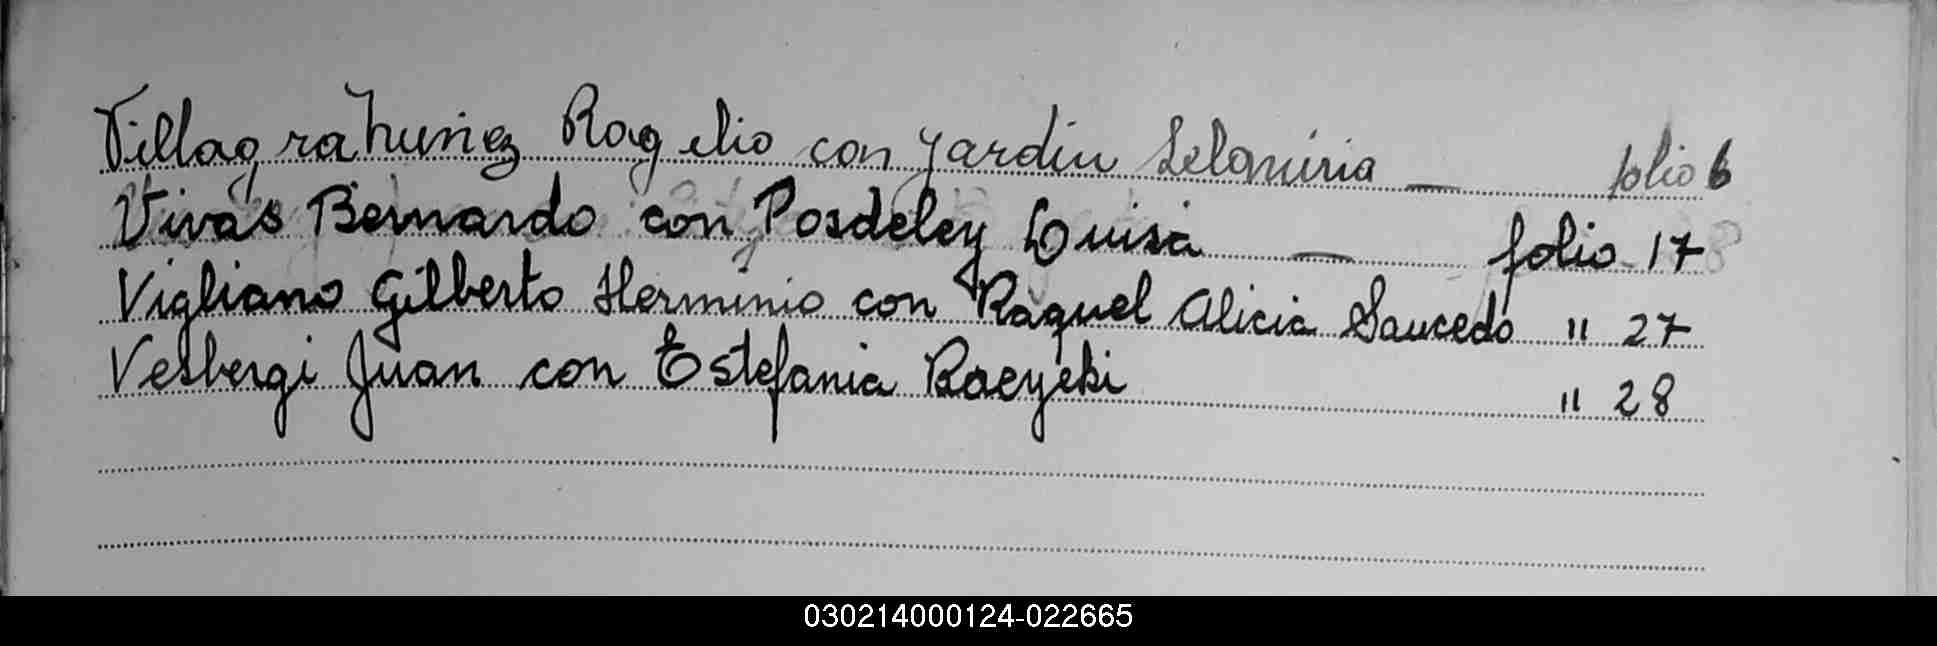 Villagra Nuñez Rogelio con Jardin Selaniria — folio 6
Vivas Bernardo con Posdeley Luisa — folio 17
Vigliano Gilberto Herminio con Raquel Alicia Saucedo " 27
Vesbergi Juan con Estefania Raeyeki " 28
030214000124-022665